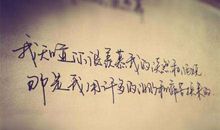 我知道你很羡慕我的淡然和洒脱
那是我用许多的泪和痛苦换来的